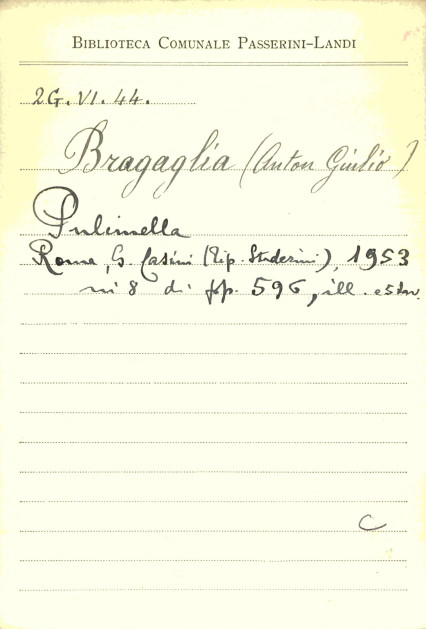 BIBLIOTECA COMUNALE PASSERINI-LANDI
2G.VI.44.
Bragaglia (Anton Giulio)
Pulcinella
Roma, G. Casini (Tip. Studerini), 1953
in 8 di pp. 596, ill. e 5 tav.
C